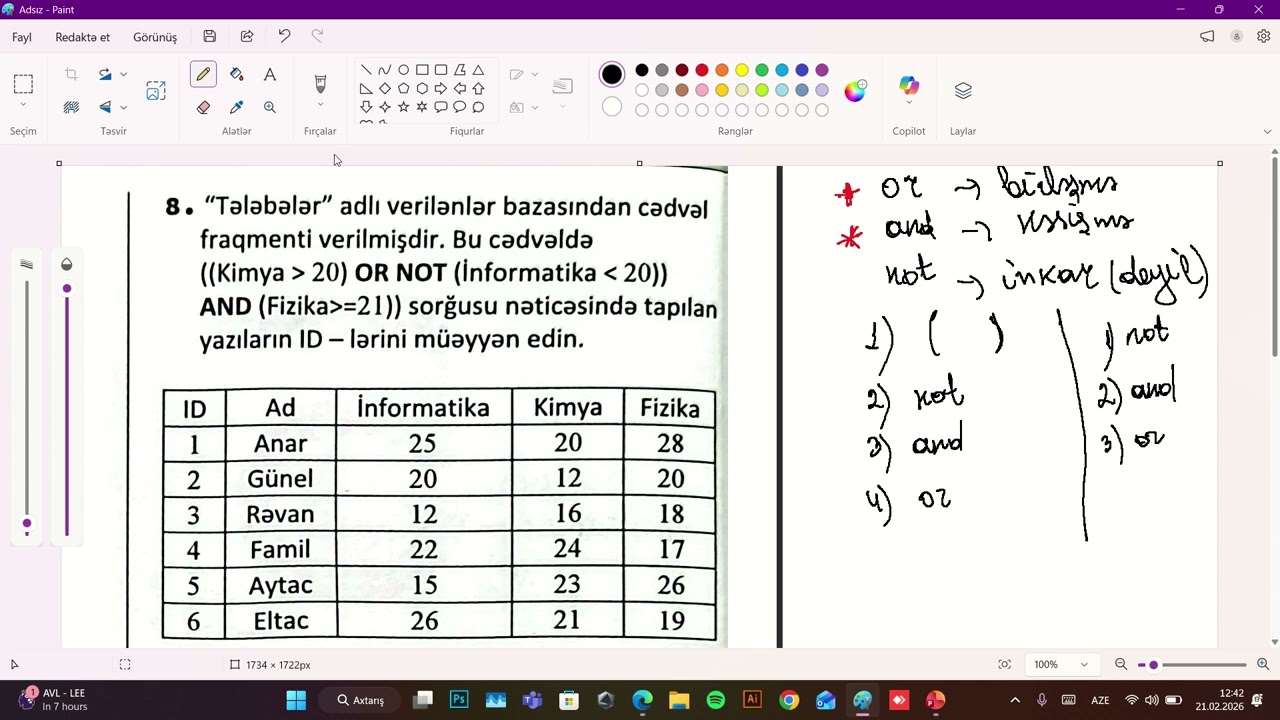 Adsız - Paint
Fayl Redaktə et Görünüş
Seçim Təsvir Alətlər Fırçalar Fiqurlar Rənglər Copilot Laylar
8. “Tələbələr” adlı verilənlər bazasından cədvəl
fraqmenti verilmişdir. Bu cədvəldə
((Kimya > 20) OR NOT (İnformatika < 20))
AND (Fizika>=21)) sorğusu nəticəsində tapılan
yazıların ID – lərini müəyyən edin.
ID Ad İnformatika Kimya Fizika
1 Anar 25 20 28
2 Günel 20 12 20
3 Rəvan 12 16 18
4 Famil 22 24 17
5 Aytac 15 23 26
6 Eltac 26 21 19
* or → birləşmə
* and → kəsişmə
not → inkar (deyil)
1) ( )
2) not
3) and
4) or
1) not
2) and
3) or
1734 × 1722px
100%
1
AVL - LEE
In 7 hours
Axtarış
AZE
12:42
21.02.2026